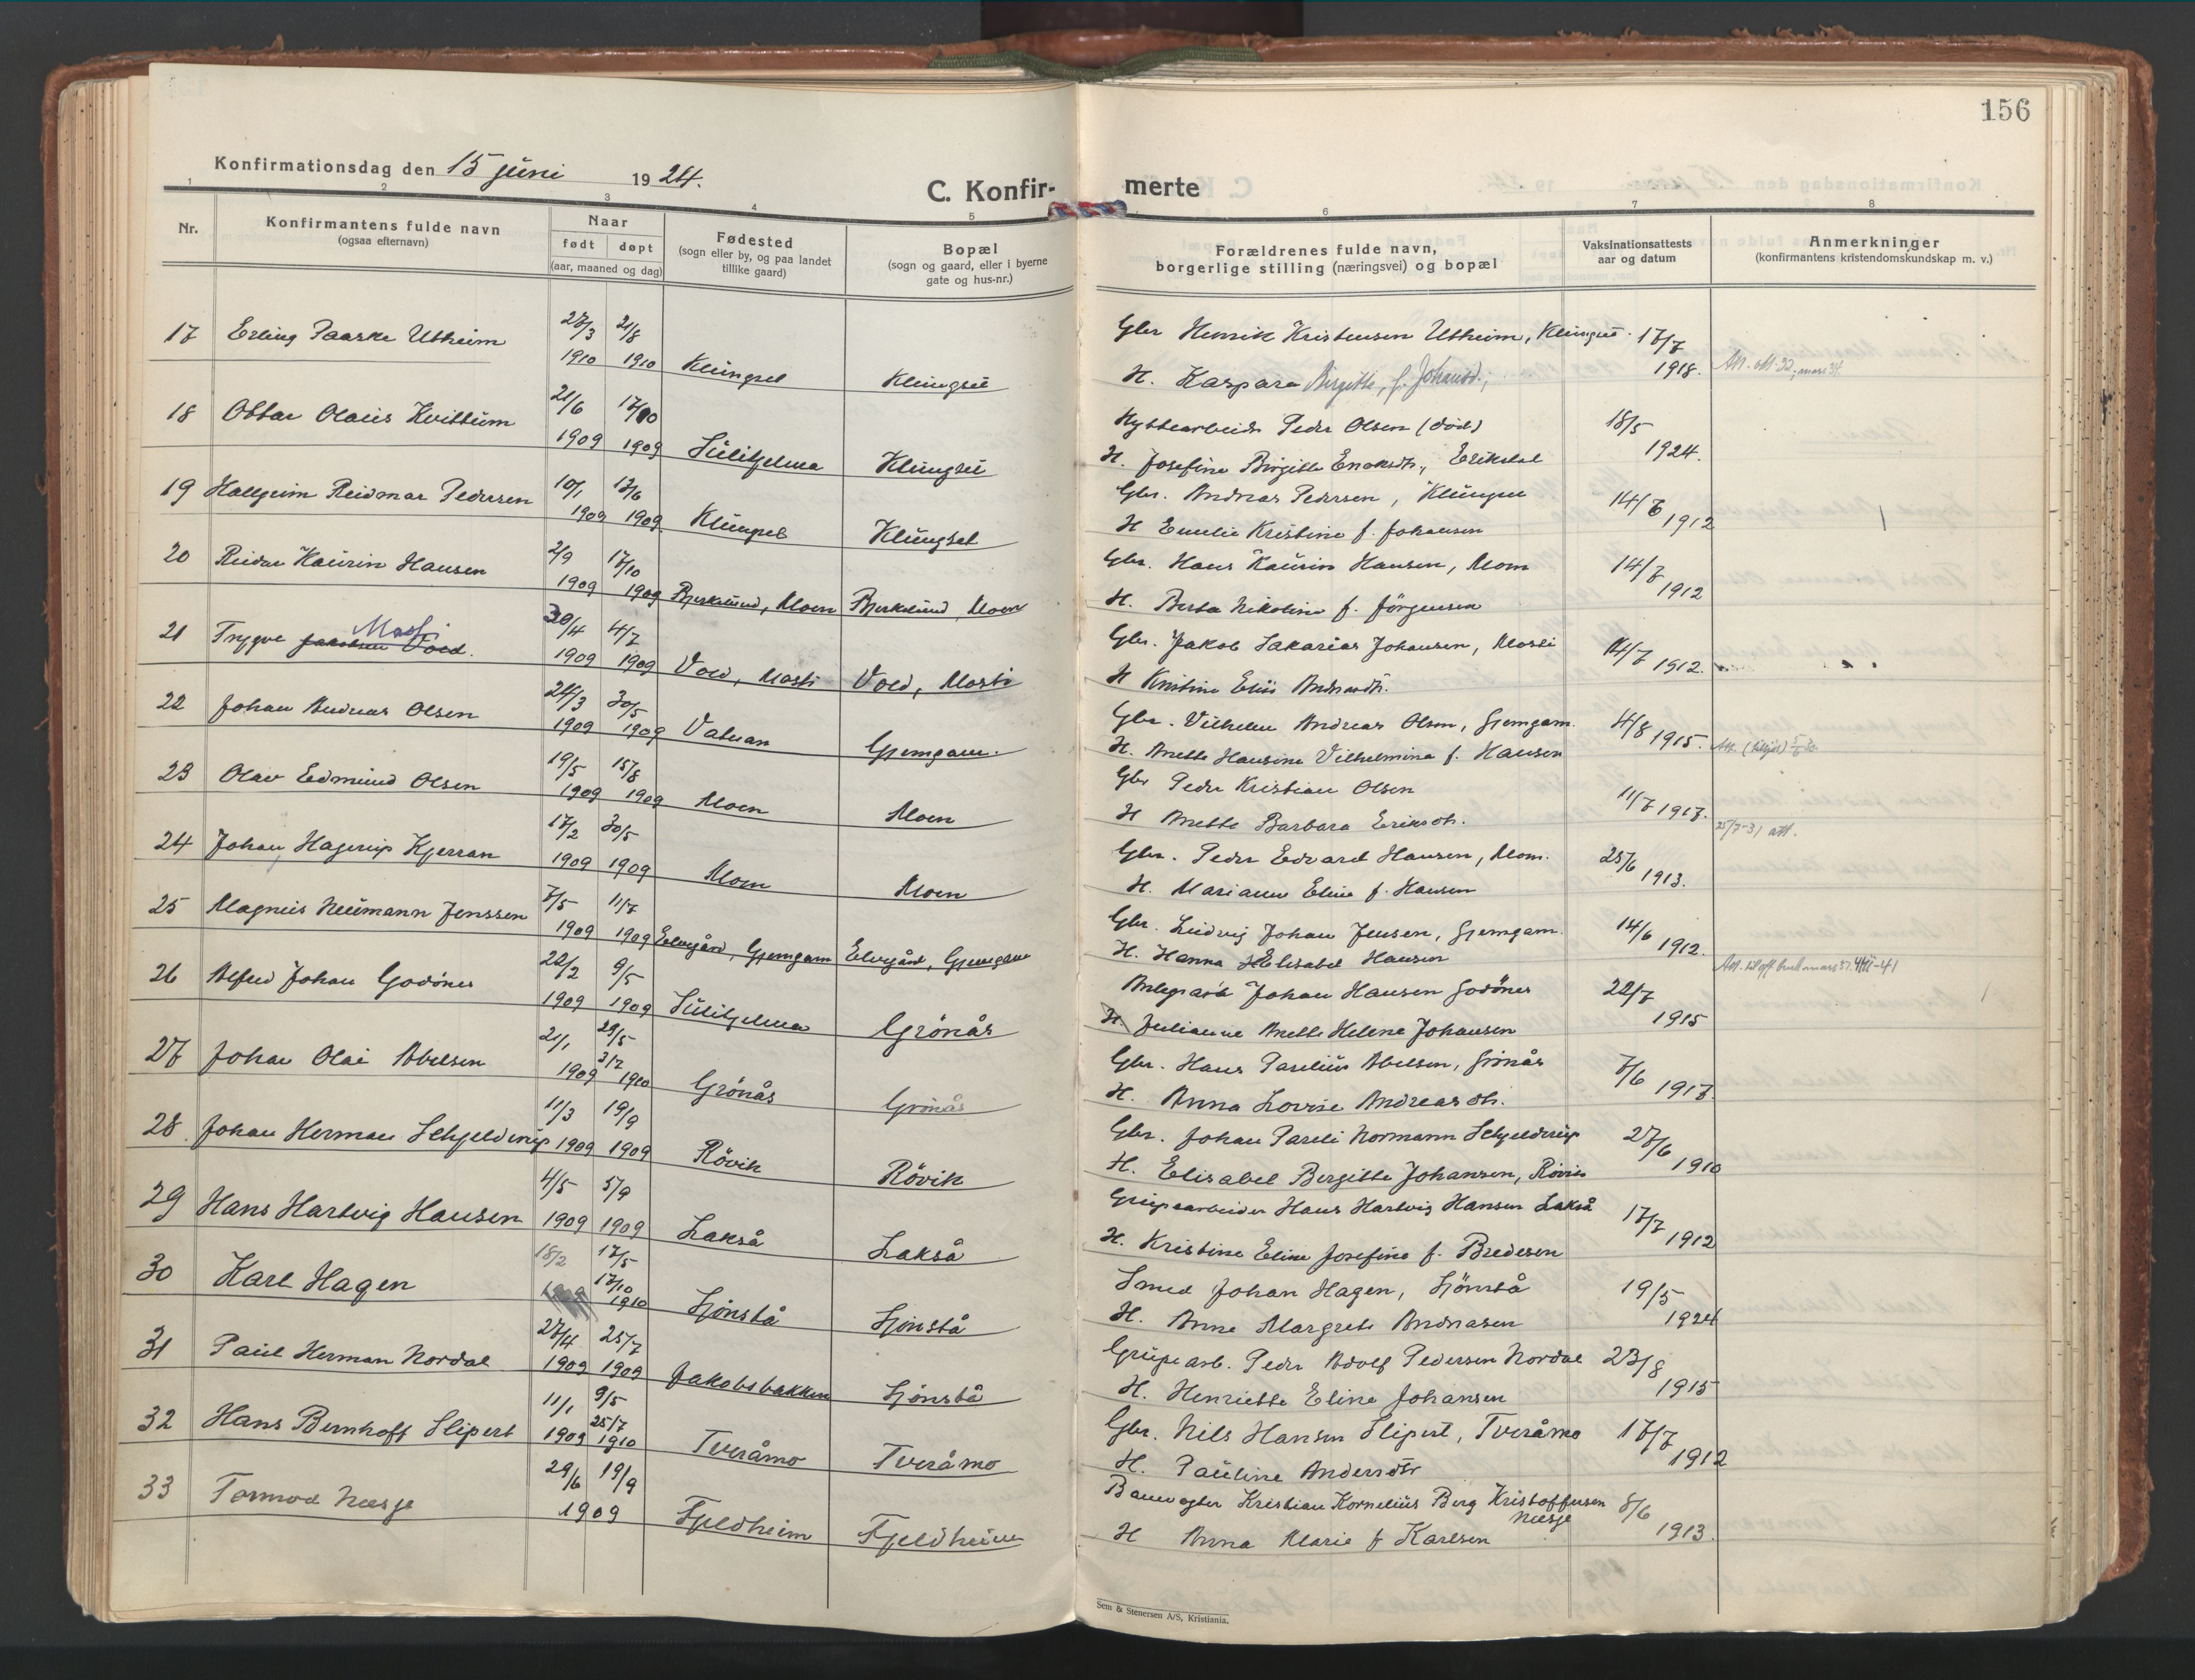 156
Konfirmationsdag den 15 juni 1924.
C. Konfirmerte
1 2 3 4 5 6 7 8
Nr.
Konfirmantens fulde navn
(ogsaa efternavn)
Naar
født døpt
(aar, maaned og dag)
Fødested
(sogn eller by, og paa landet
tillike gaard)
Bopæl
(sogn og gaard, eller i byerne
gate og hus-nr.)
Forældrenes fulde navn,
borgerlige stilling (næringsvei) og bopæl
Vaksinationsattests
aar og datum
Anmerkninger
(konfirmantens kristendomskundskap m. v.)
17 Erling Paaske Utheim 27/3 21/8 Gbr Henrik Kristensen Utheim, Klungset 17/7
1910 1910 Klungset Klungset H. Kaspara Birgitte, f. Johansd.; 1918.
18 Ottar Olaus Kvitblum 21/6 17/10 Hyttearbeider Peder Olsen (død) 18/5
1909 1909 Sulitjelma Klungset H. Josefine Birgitte Enoksdtr., Erikstad 1924.
19 Hallgrim Reidmar Pedersen 10/1 13/6 Gbr. Andreas Pedersen, Klungset 14/6
1909 1909 Klungset Klungset H Emilie Kristine f. Johansen 1912
20 Reidar Kaurin Hansen 2/9 17/10 Gbr. Hans Kaurin Hansen, Moen 14/7
1909 1909 Bjerkelund, Moen Bjerkelund, Moen H. Berta Nikoline f. Jörgensen 1912
Mosti
21 Trygve Jakobsen Vold. 30/4 4/7 Gbr. Jakob Sakarias Johansen, Mosti 14/7
1909 1909 Vold, Mosti Vold, Mosti H Kristine Elise Andreasdtr. 1912.
22 Johan Andreas Olsen 24/3 30/5 Gbr. Vilhelm Andreas Olsen, Gjemgam. 4/8
1909 1909 Vatnan Gjemgam. H. Anette Hansine Vilhelmina f. Hansen 1915.
23 Olav Edmund Olsen 19/5 15/8 Gbr Peder Kristian Olsen 11/7
1909 1909 Moen Moen H Anette Barbara Eriksdtr. 1917. 25/7-31 att.
24 Johan Hagerup Kjerran 17/2 30/5 Gbr. Peder Edvard Hansen, Moen. 25/6
1909 1909 Moen Moen H. Marianne Eline f. Hansen 1913.
25 Magnus Neumann Jenssen 7/5 11/7 Gbr. Ludvig Johan Jensen, Gjemgam. 14/6
1909 1909 Elvegård, Gjemgam Elvegård, Gjemgam H. Hanna Elisabet Hansen 1912.
26 Alfred Johan Godönes 22/2 9/5 Anlegsarb Johan Hansen Godönes 22/7
1909 1909 Sulitjelma Grönås H. Julianne Anette Helene Johansen 1915
27 Johan Olai Abelsen 21/1 29/5 Gbr. Hans Parelius Abelsen, Grönås 7/6
1909 31/7 1910 Grönås Grönås H. Anna Lovise Andreasdtr. 1917.
28. Johan Herman Schjelderup 11/3 19/9 Gbr. Johan Pareli Normann Schjelderup 27/6
1909 1909 Rövik Rövik H. Elisabet Bergitte Johansen, Rövik 1910
29 Hans Hartvig Hansen 4/5 5/9 Grupearbeider Hans Hartvig Hansen Lakså 17/7
1909 1909 Lakså Lakså H. Kristine Eline Josefine f. Bredesen 1912
30 Karl Hagen 18/2 17/5 Smed Johan Hagen, Sjönstå 19/5
1909 17/10 1910 Sjönstå Sjönstå H. Anne Margrete Andreasen 1924
31 Paul Herman Nordal 27/4 25/7 Grupearb. Peder Adolf Pedersen Nordal 23/8
1909 1909 Jakobsbakken Sjönstå H. Henriette Eline Johansen 1915
32 Hans Bernhoft Slipert 11/1 9/5 Gbr. Nils Hansen Slipert, Tveråmo 17/7
1909 25/7 1910 Tveråmo Tveråmo H. Pauline Andersdtr 1912
33 Tormod Næsje 29/6 19/9 Banevogter Kristian Kornelius Berg Kristoffersen Næsje 8/6
1909 Fjeldheim Fjeldheim H Anna Marie f Karlsen 1913.
Sem & Stenersen A/S, Kristiania.